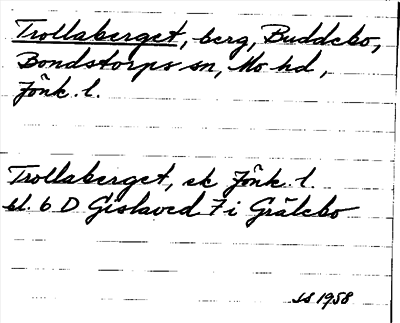 Trollaberget, berg, Buddebo,
Bondstorps sn, Mo hd,
Jönk. l.
Trollaberget, ek Jönk. l.
bl. 6 D Gislaved 7 i Grälebo
1958